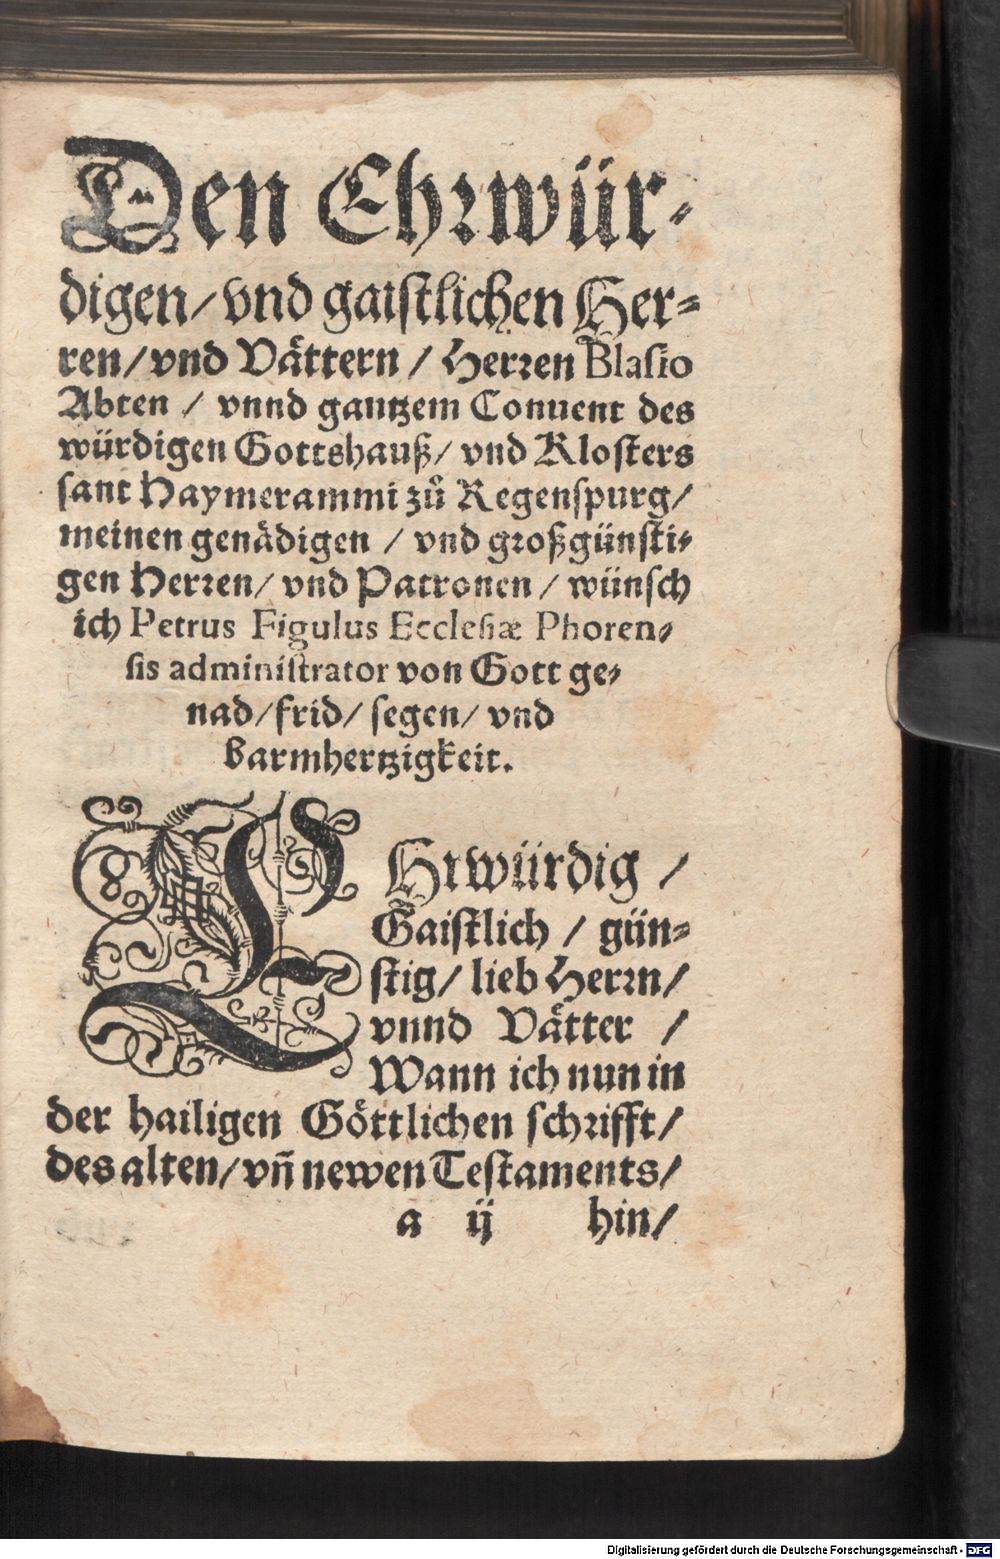 Den Ehrwür-
digen/vnd gaistlichen Her-
ren/vnd Vaͤttern / Herren Blasio
Abten / vnnd gantzem Conuent des
würdigen Gottshauß/ vnd Klosters
sant Haymerammi zuͦ Regenspurg/
meinen genaͤdigen / vnd großgünsti-
gen Herren/ vnd Patronen / wünsch
ich Petrus Figulus Ecclesiæ Phoren-
sis administrator von Gott ge-
nad/frid/ segen/ vnd
barmhertzigkeit.
EHrwürdig /
Gaistlich / gün-
stig/ lieb Herrn/
vnnd Vaͤtter /
Wann ich nun in
der hailigen Goͤttlichen schrifft/
des alten/vñ newen Testaments/
a ij hin/
Digitalisierung gefördert durch die Deutsche Forschungsgemeinschaft - DFG